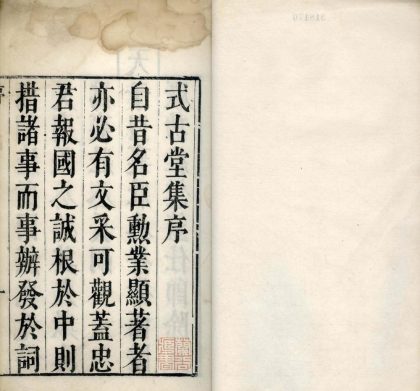 式古堂集序
自昔名臣勲業顯著者
亦必有文采可觀葢忠
君報國之誠根於中則
措諸事而事辦發於詞